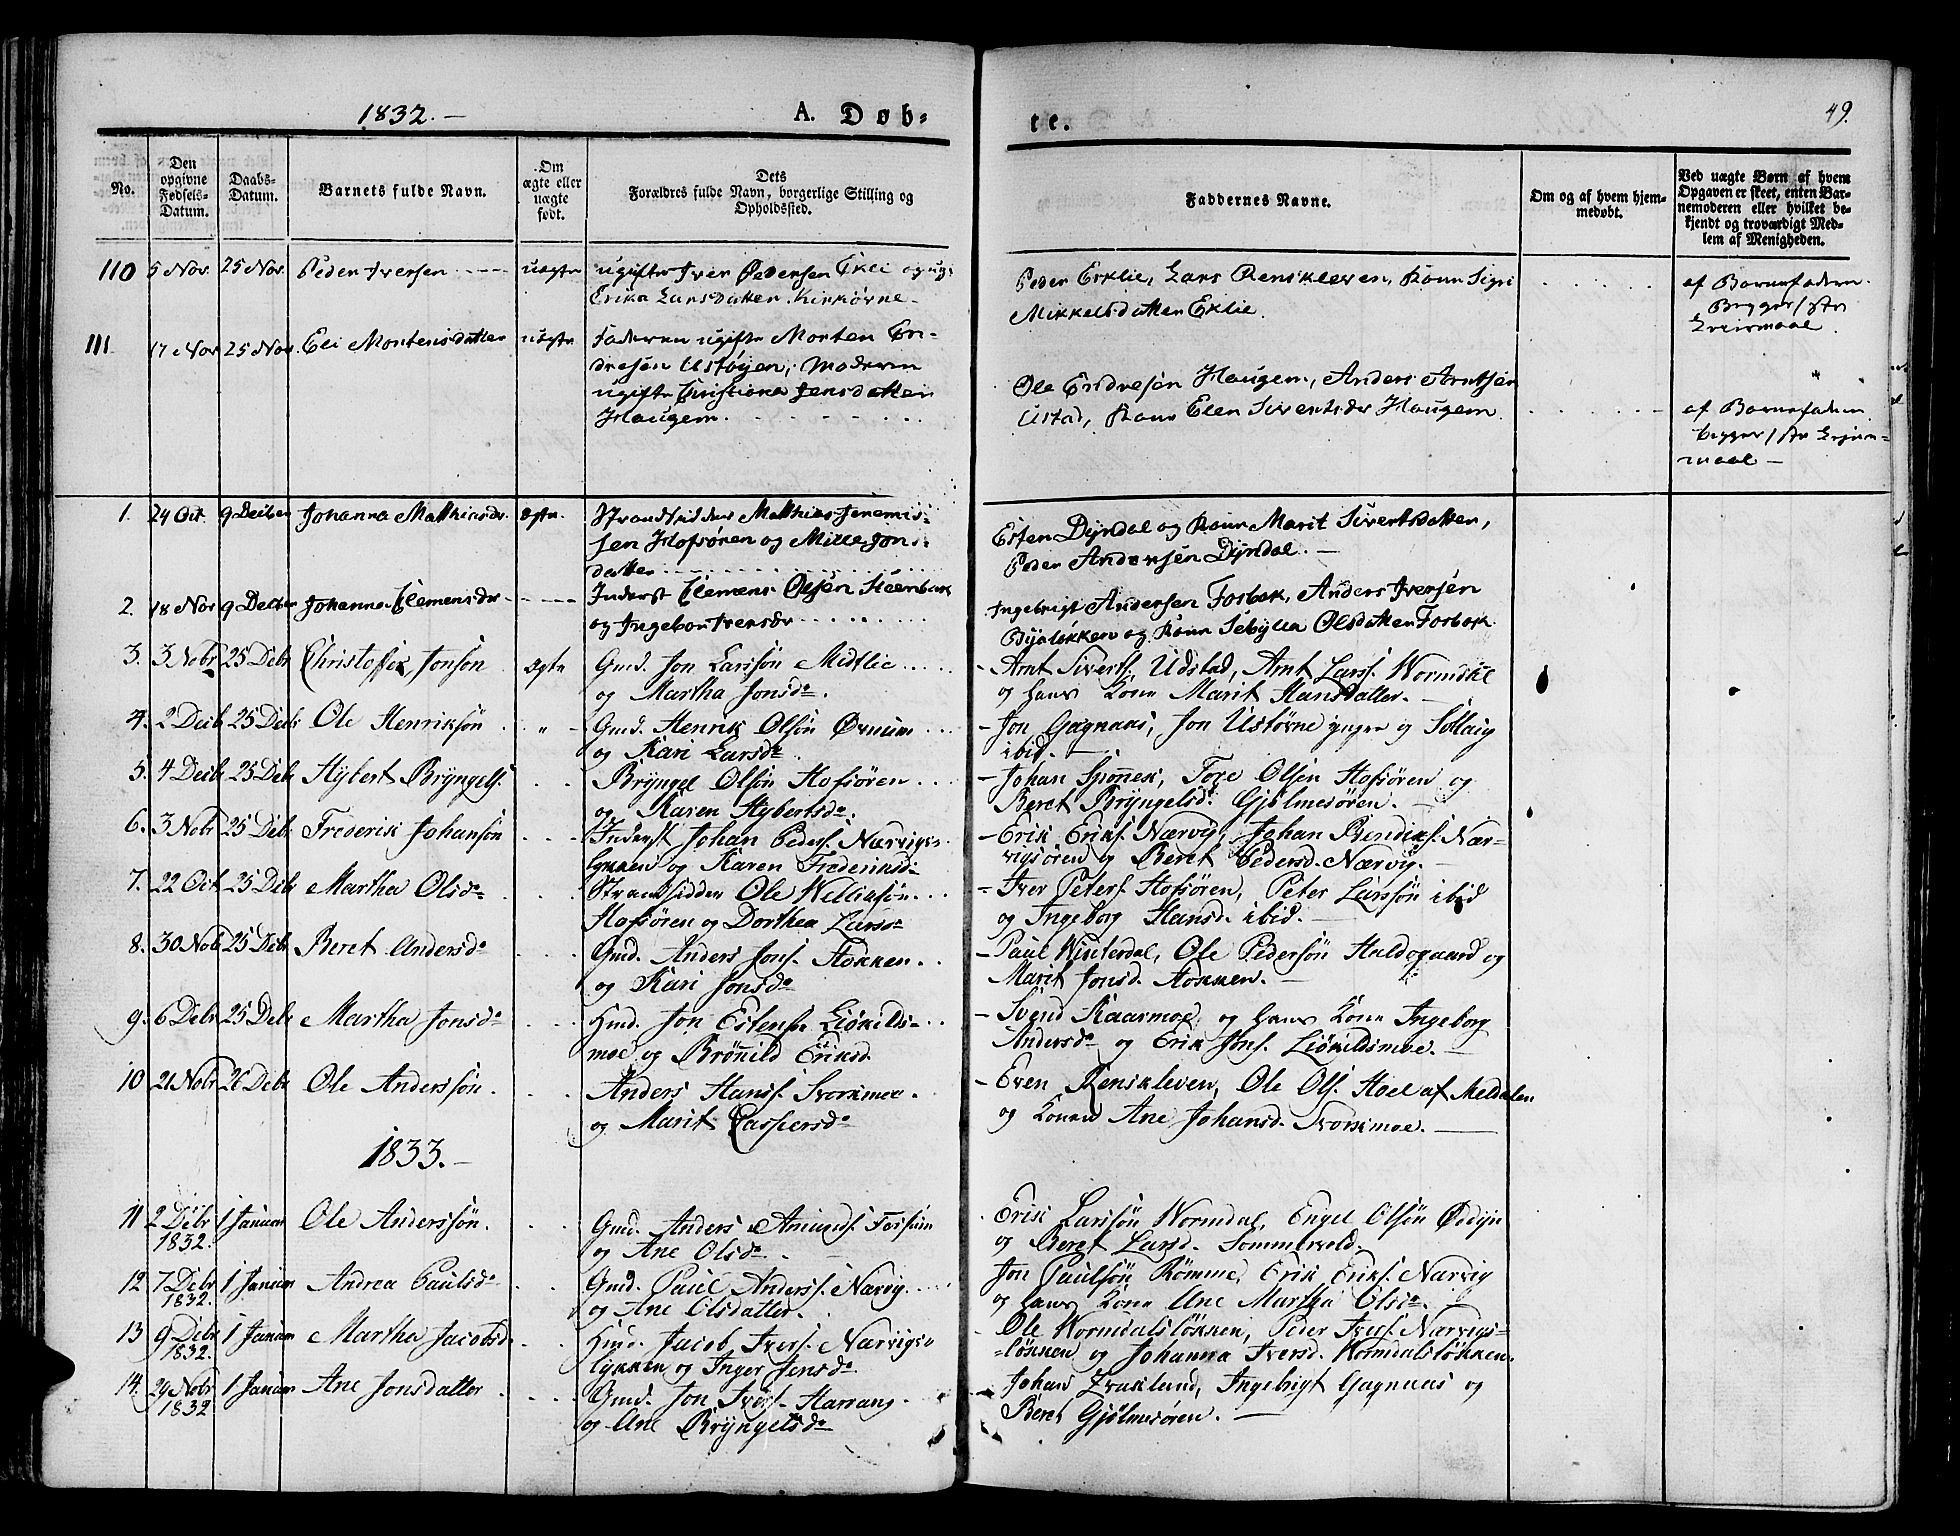 1832.— A. Døb-
te. 49.
No.
Den opgivne Fødsels-Datum.
Daabs-Datum.
Barnets fulde Navn.
Om ægte eller uægte født.
Dets Forældres fulde Navn, borgerlige Stilling og Opholdssted.
Faddernes Navne.
Om og af hvem hjem-medøbt.
Ved uægte Børn af hvem Opgaven er skeet, enten Bar-nemoderen eller hvilket be-kjendt og troværdigt Med-lem af Menigheden.
110 5 Nov. 25 Nov. Peder Iversen uægte ugifte Iver Pedersen Eklie og ugi
Erika Larsdatter Kirkøvne
Peder Eeklie, Lars Renskleven, Kone Sigri
Mikkelsdatter Eklie.
af Barnefaderen
111. 17 Nov 25 Nov. Eli Mortensdatter uægte Faderen ugifte Morten En-
dresen Ustøyen, Moderen
ugifte Christiana Jensdatter
Haugen.
Ole Endresen Haugen, Anders Arntsen
Ustad, Kone Elen Sivertsdr Haugen.
af Barnefaderen
1. 24 Oct. 9 Decber Johanna Mathiasdr. Ægte. Strandsidder Mathias Jeremis-
sen Hofsøren og Mille Jons-
datter
Esten Dyrdal og Kone Marit Sivertsdatter,
Peder Andersen Dyrdal.
2. 18 Nov 9 Decber Johanna Clemensdr Inderst Clemens Olsen Steenbæk
og Ingebor Iversdr
Ingebrigt Andersen Fosbæk, Anders Iversen
Byeløkken og Kone Sebylla Olsdatter Fosbæk
3. 3 Nobr 25 Debr Christoffer Jonsøn Ægte Gmd. Jon Larssøn Midtlie
og Martha Jonsd.
Arnt Siverts. Udstad, Arnt Larss. Wormdal
og hans Kone Marit Hansdatter.
4. 2 Decb 25 Debr Ole Henriksøn " Gmd. Henrik Olsøn Ørnum
og Kari Larsd.
Jon Gagnaas, Jon Ustørne yngre og Sollaug
ibid.
5. 4 Decb 25 Debr Hybert Bryngels. Bryngel Olsøn Hofsøren
og Karen Hybertsd.
Johan Spønnes, Tore Olsen Hofsøren og
Beret Bryngelsd. Gjølmesøren.
6. 3 Nobr 25 Debr Frederik Johansøn Inderst Johan Peders. Nærvigs-
lykken og Karen Frederiksd.
Erik Eriks. Nærvig, Johan Bendiks. Nær-
vigsøren og Beret Pedersd. Nærvig.
7. 22 Oct. 25 Debr Martha Olsd. Strandsidder Ole Williksøn
Hofsøren og Dorthea Larsd.
Iver Peters. Hofsøren, Peter Larssøn ibid
og Ingeborg Hansd. ibid.
8. 30 Nobr 25 Debr Beret Andersd. Gmd. Anders Jons. Hokken
og Kari Jonsd.
Paul Winterdal, Ole Pedersøn Huldogaard og
Marit Jonsd. Hokken.
9. 6 Debr 25 Debr Martha Jonsd. Hmd. Jon Estens. Liøkilds-
moe og Brønild Eriksd.
Svend Kaarmoe og hans Kone Ingeborg
Andersd. og Erik Jons. Liøkildsmoe.
10 21 Nobr 26 Debr Ole Anderssøn. Anders Hanss. Svorkmoe
og Marit Caspersd.
Even Renskleven, Ole Ols. Hoel af Meldalen
og Konen Ane Johansd. Svorkmoe.
1833.
11 2 Debr 1832. 1 Januar Ole Anderssøn. Gmd. Anders Amunds. Forsum
og Ane Olsd.
Erik Larssøn Wormdal, Engel Olsøn Ødeyn
og Beret Larsd. Sommervold.
12 7 Debr 1832. 1 Januar Andrea Paulsd. Gmd. Paul Anderss. Nærvig
og Ane Olsdatter.
Jon Paulsøn Rømme, Erik Eriks. Nærvig
og hans Kone Ane Martha Olsd.
13 9 Debr 1832. 1 Januar Martha Jacobsd. Hmd. Jacob Ivers. Nærvigs-
lykken og Inger Jensd.
Ole Wormdalsløkken, Peder Ivers. Nærvigs-
løkken og Johanna Iversd. Wormdalsløkken.
14. 29 Nobr 1832 1 Januar Ane Jonsdatter Gmd. Jon Ivers. Harrang
og Ane Bryngelsd.
Johan Kraklund, Ingebrigt Gagnaas og
Beret Gjølmesøren.